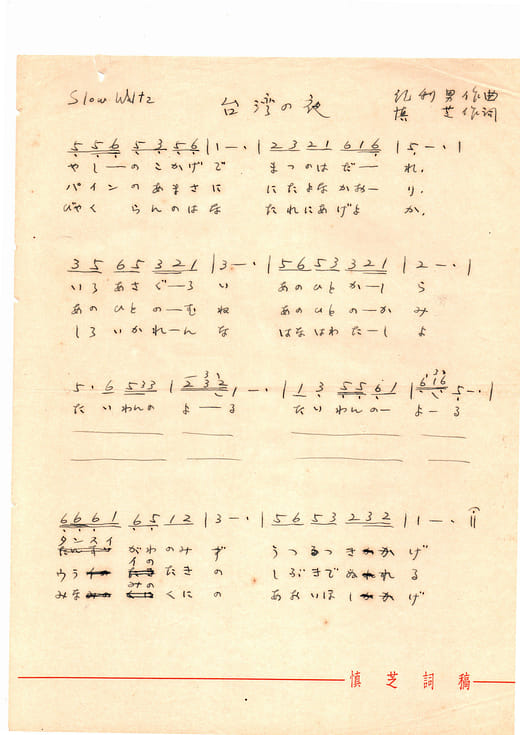 Slow Waltz
台湾の夜
紀利男作曲
慎芝作詞
5 5 6 5 3 5 6 | 1 - · | 2 3 2 1 6 1 6 | 5 - · |
やしーのこかげで まつのはだーれ.
パインのあまさに にたよなかおーり.
びゃくらんのはな たれにあげよか.
3 5 6 5 3 2 1 | 3 - · | 5 6 5 3 3 2 1 | 2 - · |
いろあさぐーろい あのひとかーしら
あのひとのーむね あのひとのーかみ
しろいかれーんな はなはわたーしよ
たいわんのよーる たいわんのーよーる
6 6 6 1 6 5 1 2 | 3 - · | 5 6 5 3 2 3 2 | 1 - ·
タンスイがわのみず うつるつきかげ
ウライのたきの しぶきでぬれる
みなみのくにの あおいほしかげ
慎芝詞稿